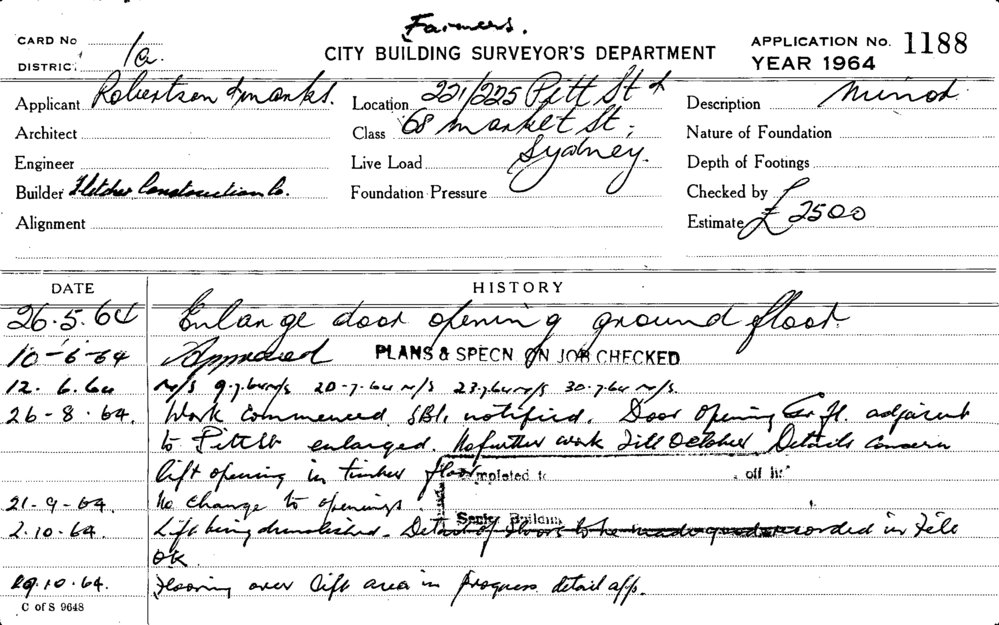 Farmers.
CARD No
DISTRICT 1a.
CITY BUILDING SURVEYOR'S DEPARTMENT
APPLICATION No. 1188
YEAR 1964
Applicant Robertson & Marks.
Location 221/225 Pitt St &
Description Minor
Architect
Class 68 Market St;
Nature of Foundation
Engineer
Live Load Sydney.
Depth of Footings
Builder Fletcher Construction Co.
Foundation Pressure
Checked by
Alignment
Estimate £2500
DATE HISTORY
26.5.64 Enlarge door opening ground floor.
10-6-64 Approved PLANS & SPECN ON JOB CHECKED
12.6.64 n/s 9.7.64 n/s 20-7-64 n/s 23.7.64 n/s 30.7.64 n/s.
26-8-64. Work commenced. SBI. notified. Door opening Gr fl. adjacent
to Pitt St enlarged. No further work till October Details concern
lift opening in timber floor
mpleted to off in
21-9-64. No change to openings.
Senior Buildin
2.10.64. Lift being demolished. Detail of floors to be made good recorded in File
OK
29.10.64. Flooring over lift area in progress detail app.
C of S 9648